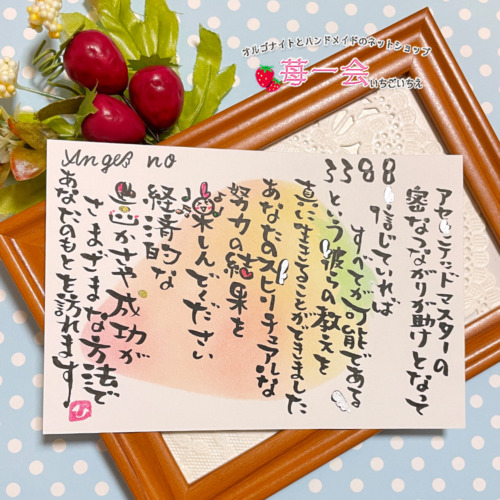 オルゴナイトとハンドメイドのネットショップ
苺一会
いちごいちえ
Angel no
3388
アセンデッドマスターの
密なつながりが助けとなって
「信じていれば
すべてが可能である」
という彼らの教えを
真に生きることができました
あなたのスピリチュアルな
努力の結果を
楽しんでください
経済的な
豊かさや成功が
さまざまな方法で
あなたのもとを訪れます。
ひ